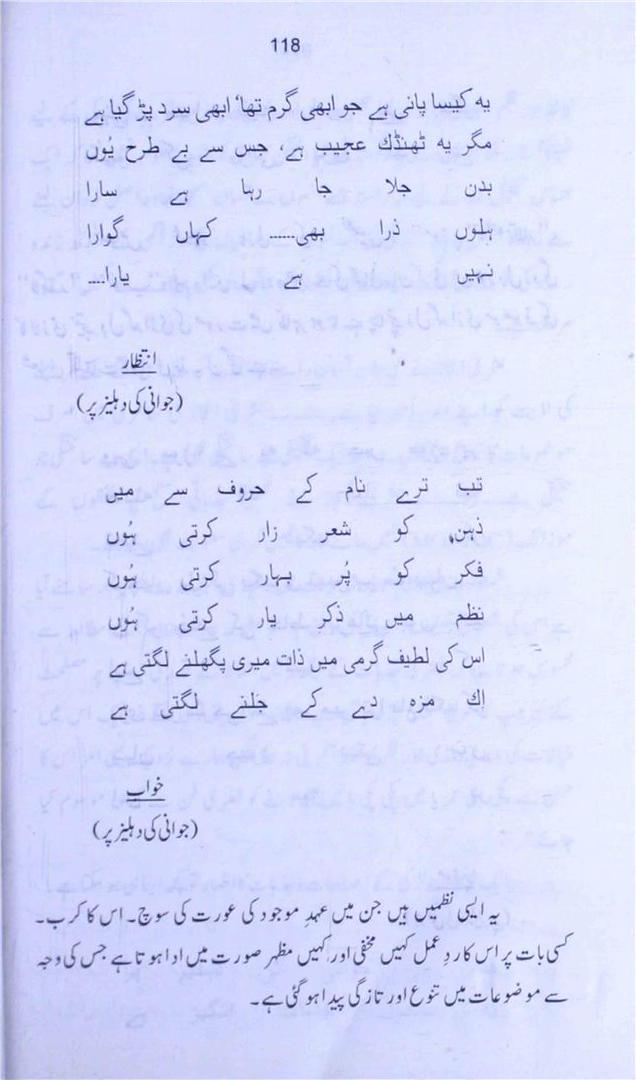 118
یہ کیسا پانی ہے جو ابھی گرم تھا' ابھی سرد پڑ گیا ہے
مگر یہ ٹھنڈک عجیب ہے، جس سے بے طرح یُوں
بدن جلا جا رہا ہے سارا
ہلوں ذرا بھی...... کہاں گوارا
نہیں ہے یارا....
انتظار
(جوانی کی دہلیز پر)
تب ترے نام کے حروف سے میں
ذہن کو شعر زار کرتی ہُوں
فکر کو پُر بہار کرتی ہُوں
نظم میں ذکر یار کرتی ہُوں
اس کی لطیف گرمی میں ذات میری پگھلنے لگتی ہے
اِک مزہ دے کے جلنے لگتی ہے
خواب
(جوانی کی دہلیز پر)
یہ ایسی نظمیں ہیں جن میں عہدِ موجود کی عورت کی سوچ۔ اس کا کرب۔
کسی بات پر اس کا ردِ عمل کہیں مخفی اور کہیں مظہر صورت میں ادا ہوتا ہے جس کی وجہ
سے موضوعات میں تنوع اور تازگی پیدا ہو گئی ہے۔